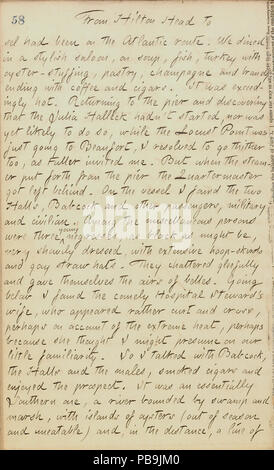 58
From Hilton Head to
sel had been on the Atlantic route. We dined
in a stylish saloon, on soup, fish, turkey with
oyster-stuffing, pastry, champagne and brandy
ending with coffee and cigars. It was exceed-
ingly hot. Returning to the pier and discovering
that the Julia Halleck hadn't started, nor was
yet likely to do so, while the Locust Point was
just going to Beaufort, I resolved to go thither
too, as Fuller invited me. But when the steam-
er put forth from the pier the Quartermaster
got left behind. On the vessel I found the two
Halls, Babcock and other passengers, military
and civilian. Among the miscellaneous persons
were three young
very showily dressed, with extensive hoop-skirts
and gay straw hats. They chattered gleefully
and gave themselves the airs of belles. Going
below I found the comely Hospital Steward's
wife, who appeared rather curt and cross,
perhaps on account of the extreme heat, perhaps
because she thought I might presume on our
little familiarity. So I talked with Babcock,
the Halls and the males, smoked cigars and
enjoyed the prospect. It was an essentially
Southern one, a river bounded by swamp and
marsh, with islands of oysters (out of season
and uneatable) and, in the distance, a line of
alamy
alamy
Image ID: PB9JM0
www.alamy.com